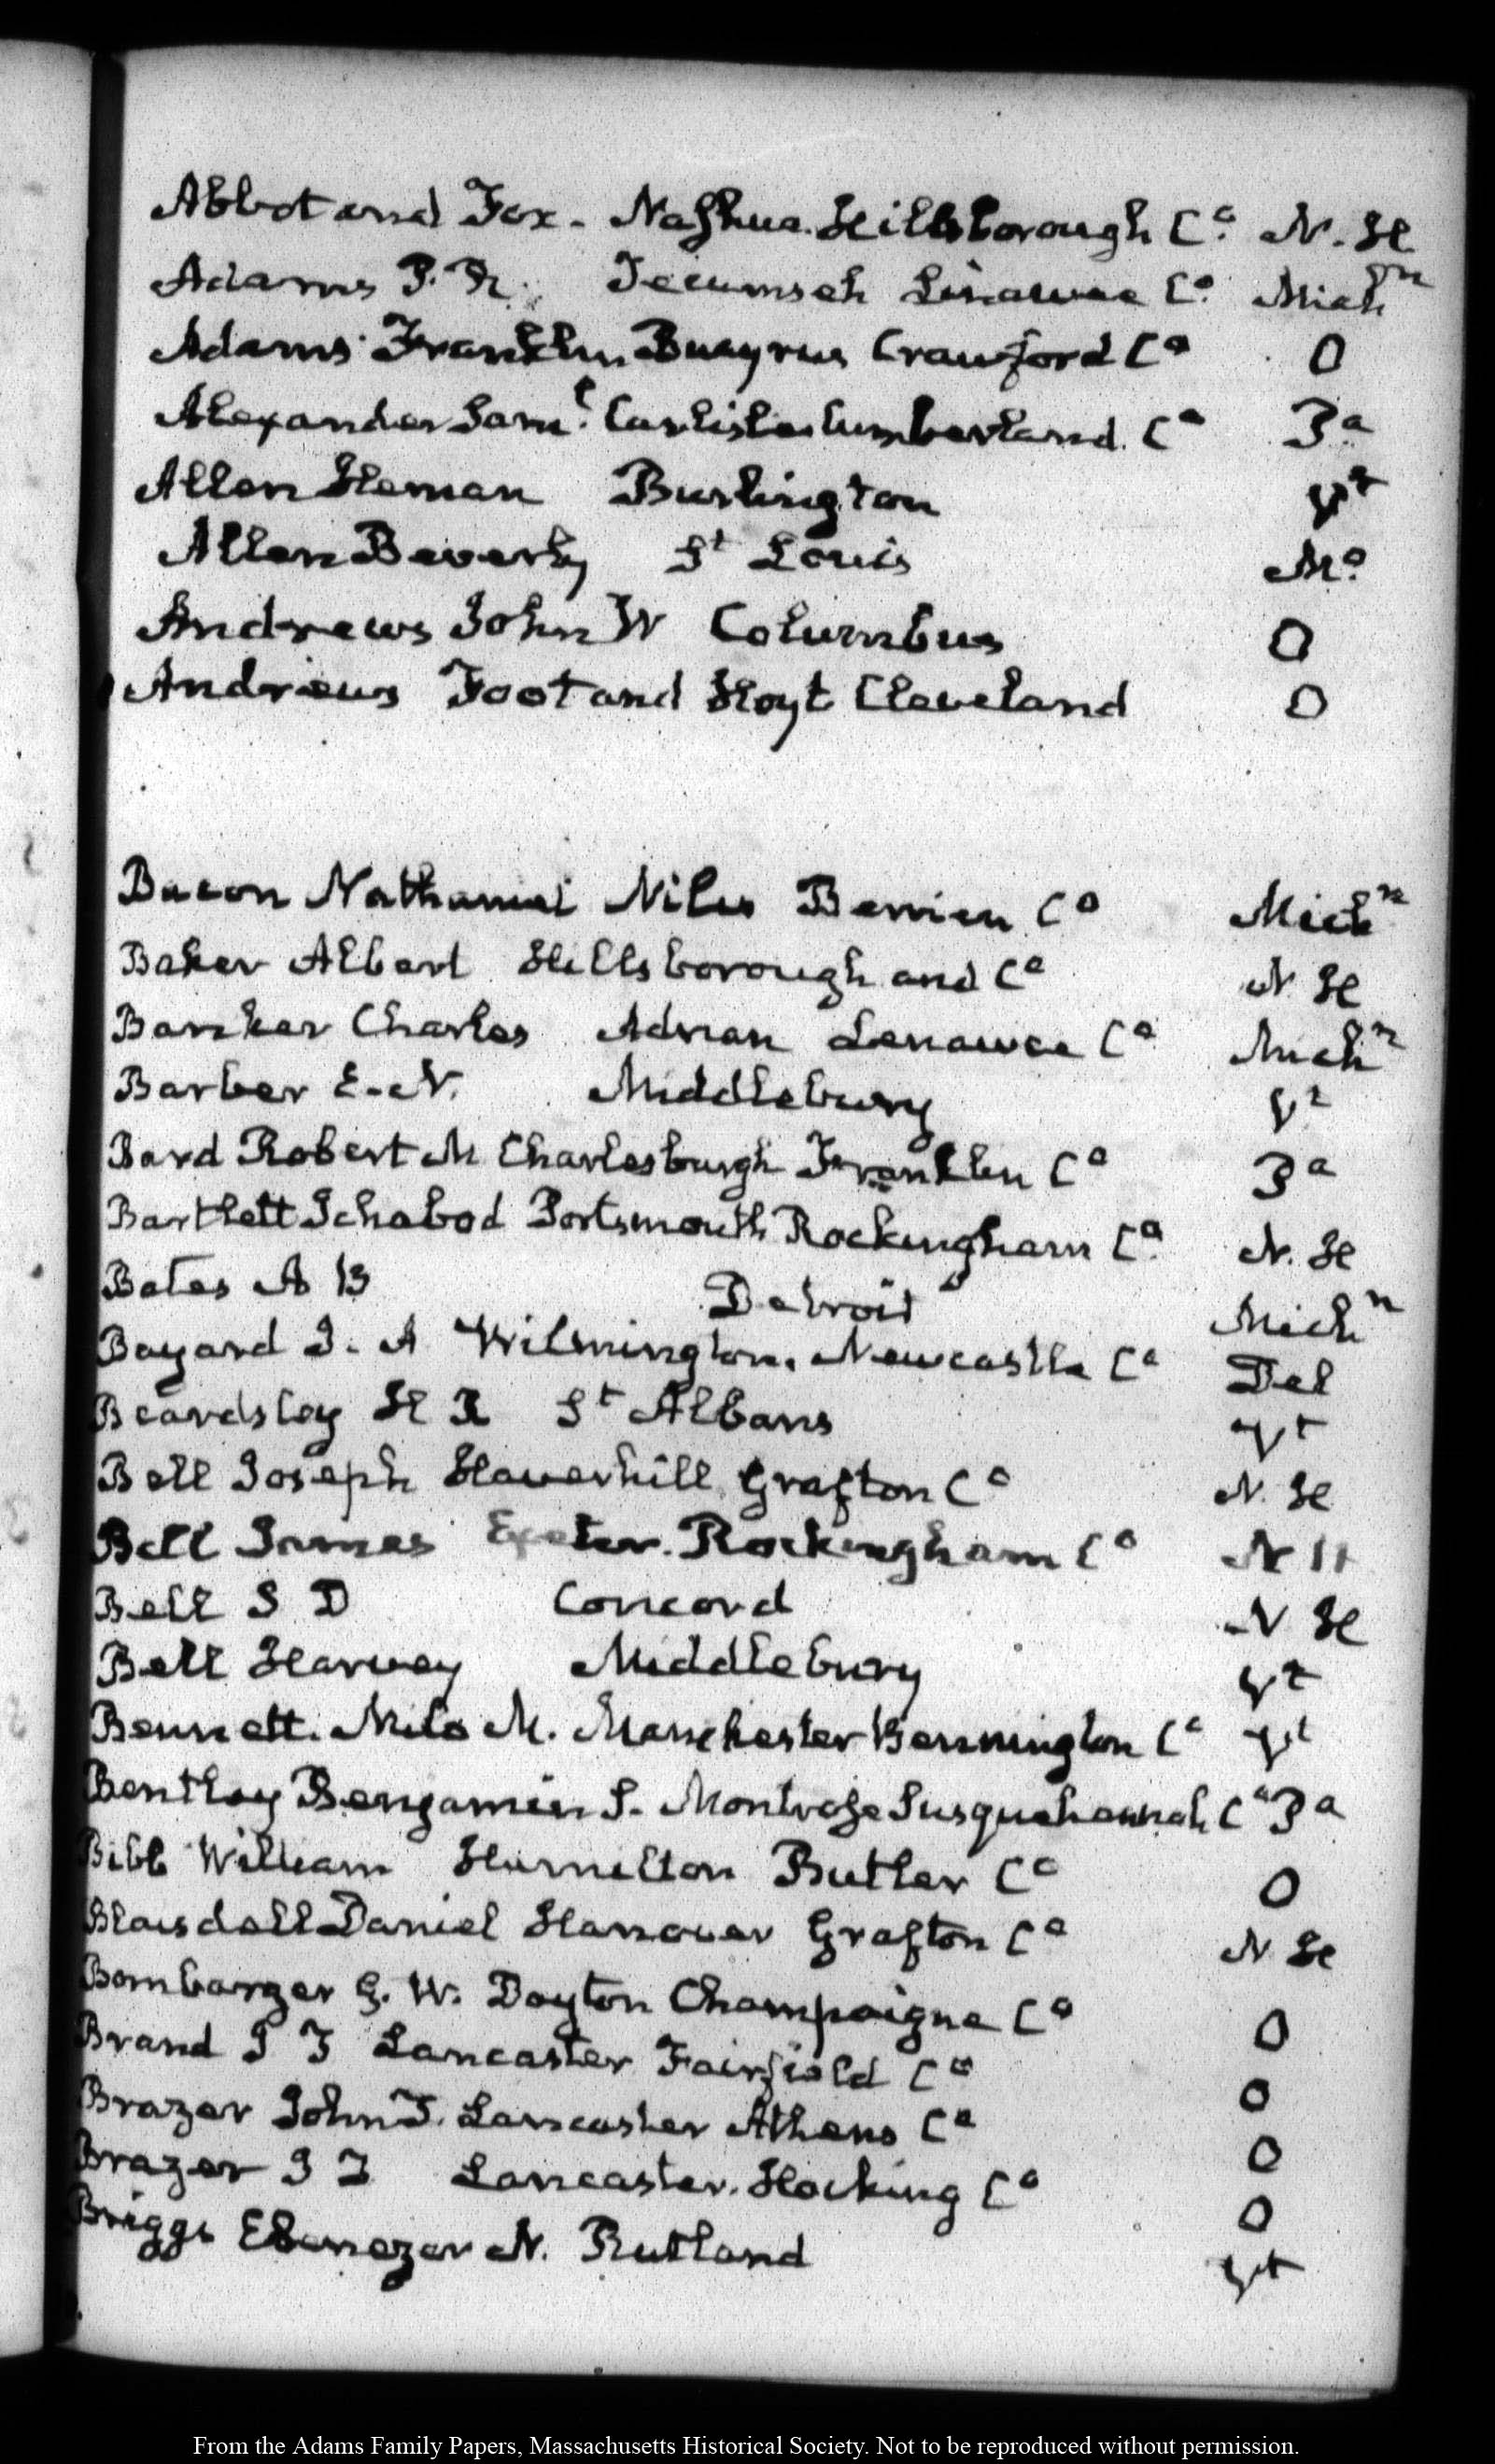 Abbot and Fox. Nashua. Hillsborough Co. N. H
Adams P. R. Tecumseh Linawee Co. Michn
Adams Franklin Bucyrus Crawford Co O
Alexander Saml. Carlisle Cumberland Co Pa
Allen Heman Burlington Vt
Allen Beverly St Louis Mo
Andrews John W Columbus O
Andrews Foot and Hoyt Cleveland O
Bacon Nathaniel Niles Berrien Co Michn
Baker Albert Hillsborough and Co N. H
Banker Charles Adrian Lenawee Co Michn
Barber E. N. Middlebury Vt
Bard Robert M Charlesburgh Franklin Co Pa
Bartlett Ichabod Portsmouth Rockingham Co. N. H
Bates A B Detroit Michn
Bayard J. A Wilmington. Newcastle Co Del
Beardsley H R St Albans Vt
Bell Joseph Haverhill Grafton Co N. H
Bell James Exeter. Rockingham Co N H
Bell S D Concord N H
Bell Harvey Middlebury Vt
Bennett. Milo M. Manchester Bennington Co Vt
Bentley Benjamin S. Montrose Susquehannah Co Pa
Bibb William Hamilton Butler Co O
Blaisdell Daniel Hanover Grafton Co N H
Bombarger G. W. Dayton Champaigne Co O
Brand J F Lancaster Fairfield Co O
Brazer John F. Lancaster Athens Co O
Brazer J F Lancaster. Hocking Co O
Briggs Ebenezer N. Rutland Vt
From the Adams Family Papers, Massachusetts Historical Society. Not to be reproduced without permission.